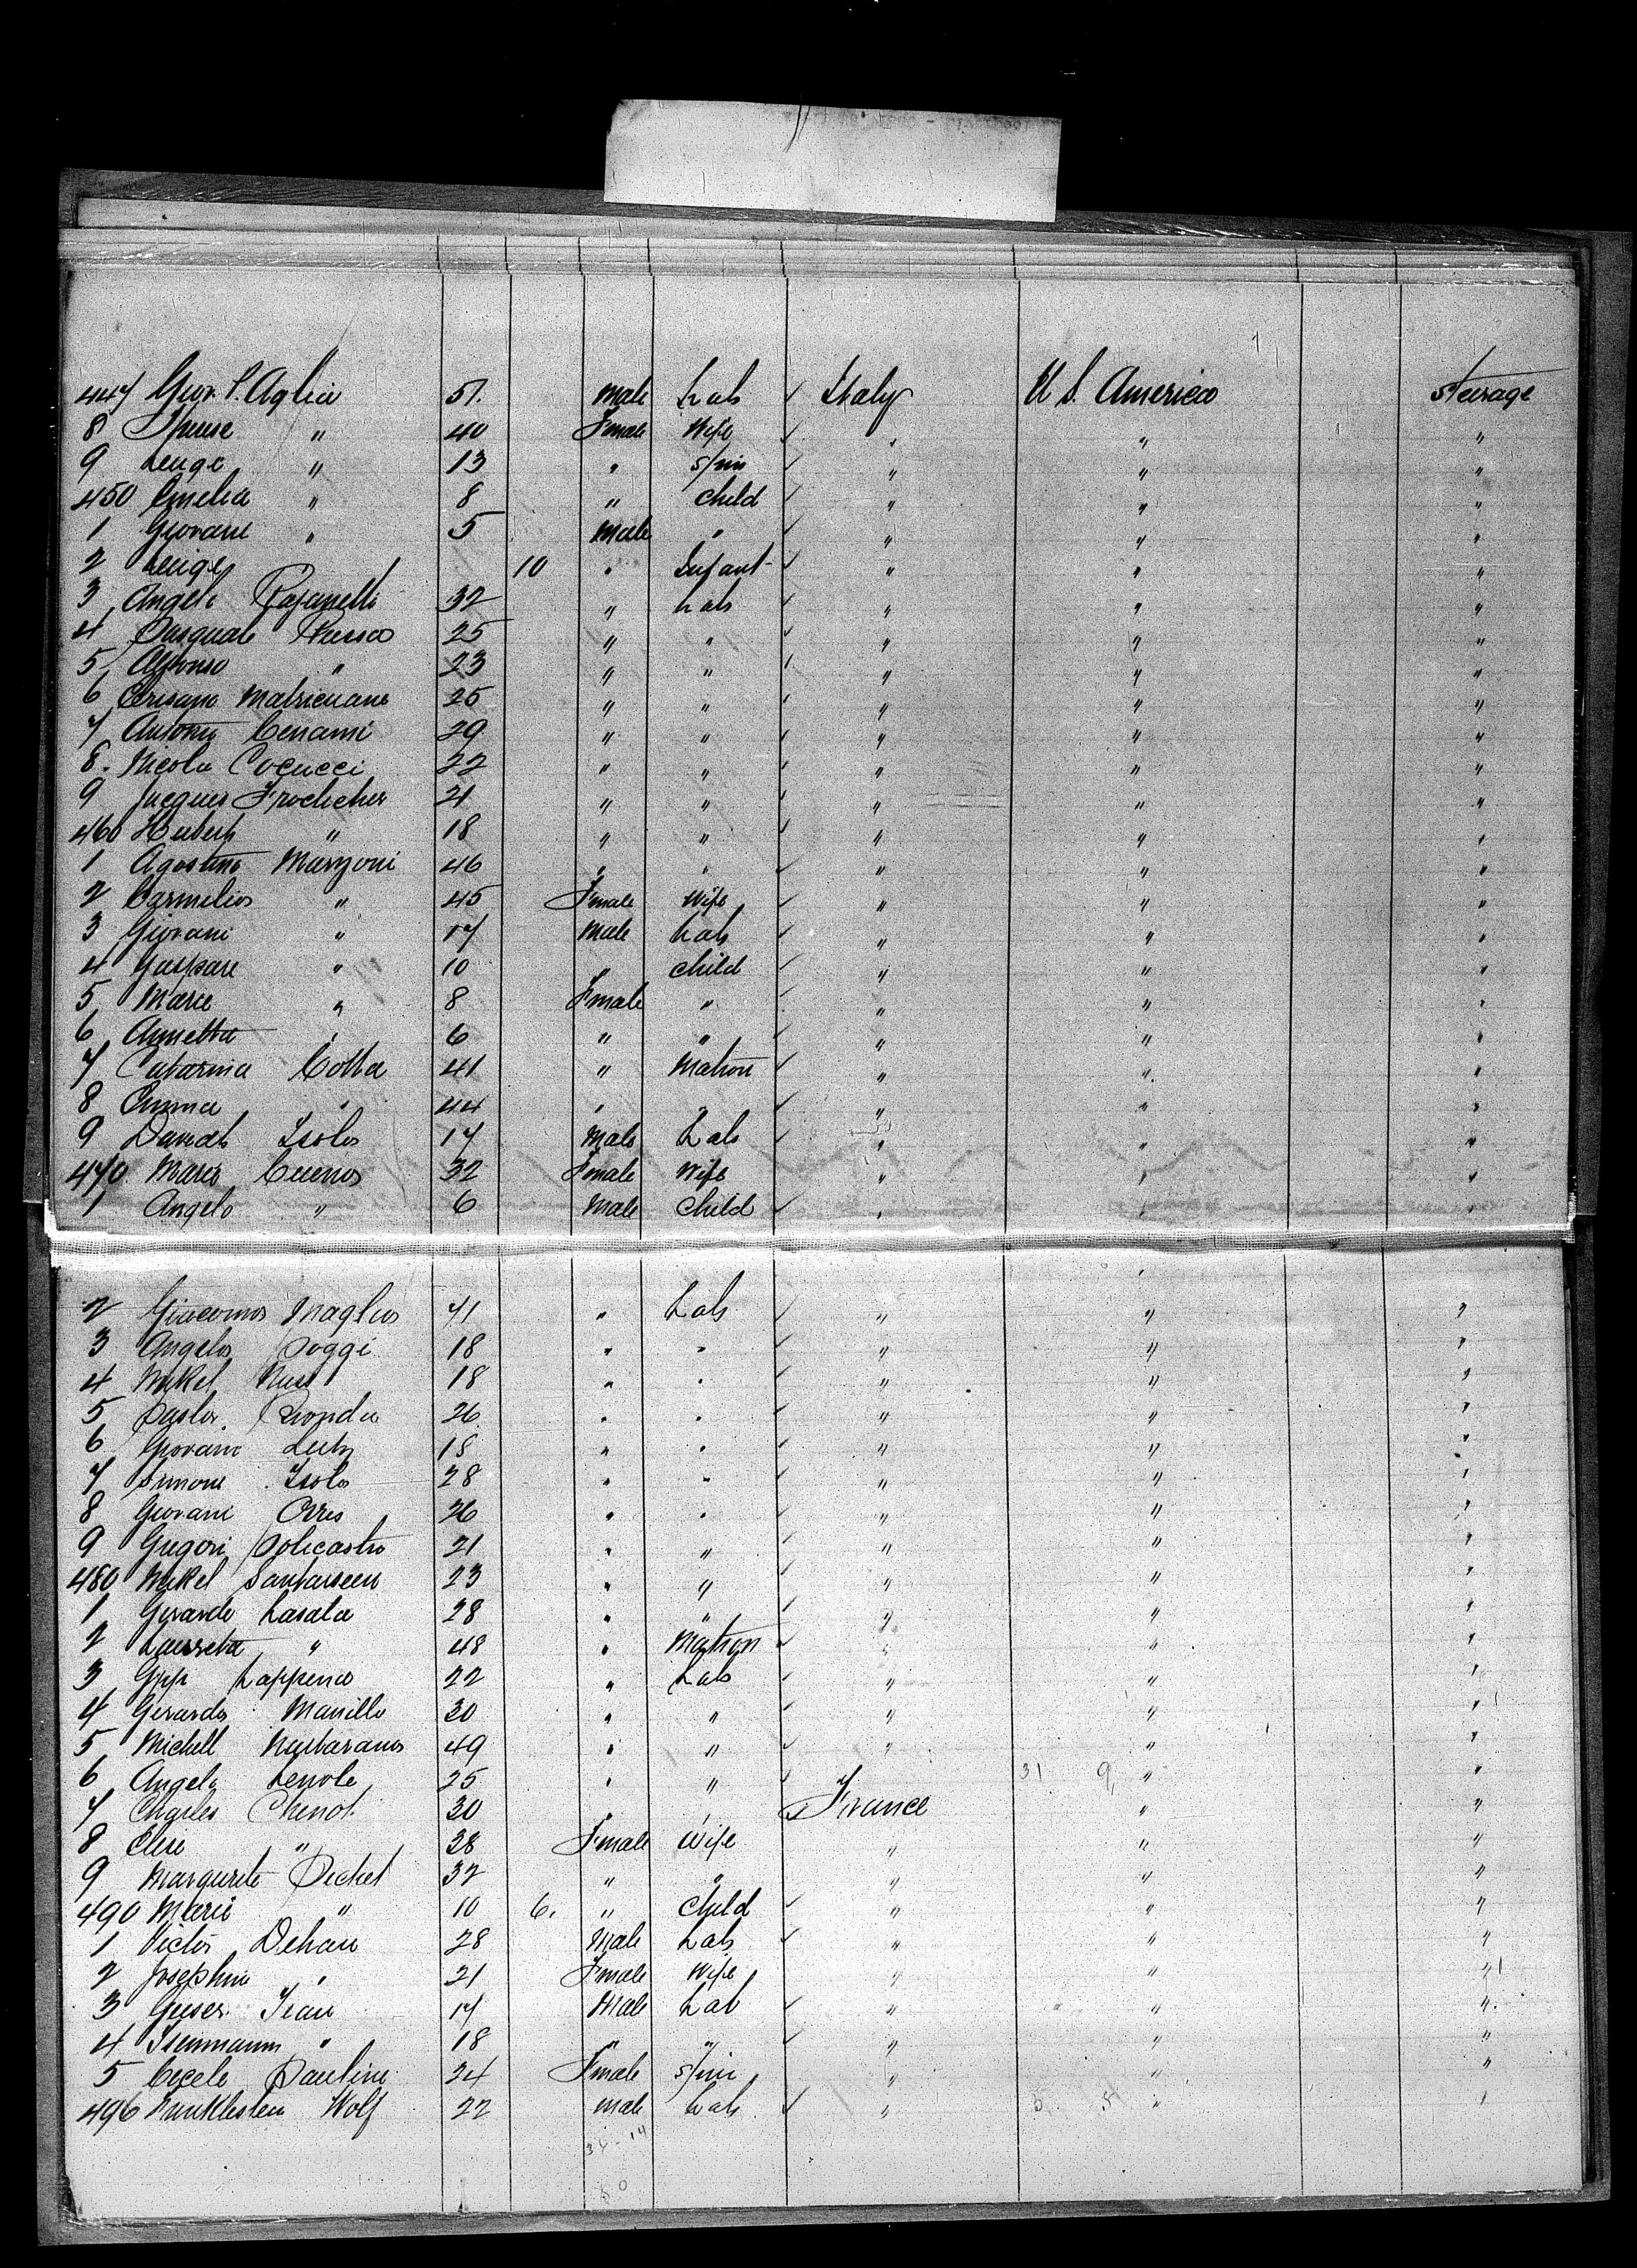 447 Giov. P. Aglia 51. Male Lab ✓ Italy U S. America Steerage
8 " 40 Female Wife ✓ " " "
9 Luige " 13 " Spin ✓ " " "
450 Emelia " 8 " Child ✓ " " "
1 Giovani " 5 Male " ✓ " " "
2 Luige 10 " Infant ✓ " " "
3 Angelo 32 " Lab ✓ " " "
4 Pasquale Russo 25 " " ✓ " " "
5 Alfonso " 23 " " ✓ " " "
6 25 " " ✓ " " "
7 Antonio Cenami 29 " " ✓ " " "
8. Nicola Cocucci 22 " " ✓ " " "
9 Jacques Frochcher 21 " " ✓ " " "
460 Hubert " 18 " " ✓ " " "
1 Agostino Marzoni 46 " " ✓ " " "
2 Carmelios " 45 Female Wife ✓ " " "
3 Giovani " 17 Male Lab ✓ " " "
4 Gaspare " 10 " Child ✓ " " "
5 Marie " 8 Female " ✓ " " "
6 Annetta " 6 " " ✓ " " "
7 Catarina Cotta 41 " Matron ✓ " " "
8 Emma " 44 " " ✓ " " "
9 Davidh Isolo 17 Male Lab ✓ " " "
470. Maria Cuenos 32 Female Wife " " "
1 Angelo " 6 Male Child ✓ " " "
2 Giacomos Maglios 41 " Lab ✓ " " "
3 Angelos Poggi 18 " " ✓ " " "
4 Mikel Russ 18 " " ✓ " " "
5 26 " " ✓ " " "
6 Giovani Luty 18 " " ✓ " " "
7 Simone Isolo 28 " " ✓ " " "
8 Giovani Orres 26 " " ✓ " " "
9 Gregori Policastro 21 " " ✓ " " "
480 Mikel 23 " " ✓ " " "
1 Gerardo Lasala 28 " " ✓ " " "
2 Lauretta " 48 " Matron ✓ " " "
3 Gipp Lappenos 22 " Lab ✓ " " "
4 Gerardo Manillo 30 " " ✓ " " "
5 Michell 49 " " ✓ " " "
6 Angelo Lenole 25 " " ✓ 31 9 " "
7 Charles Chenot 30 " " ✓ France " "
8 Elise " 28 Female Wife " " "
9 Margurete Pichet 32 " " " " "
490 Marie " 10 6. " Child ✓ " " "
1 Victor Dehan 28 Male Lab ✓ " " "
2 Josephine " 21 Female Wife " " "
3 Geiser Jean 17 Male Lab ✓ " " "
4 Isenmann " 18 " " ✓ " " "
5 Cecele Pauline 24 Female Spin " " "
496 Wolf 22 Male Lab ✓ " " "